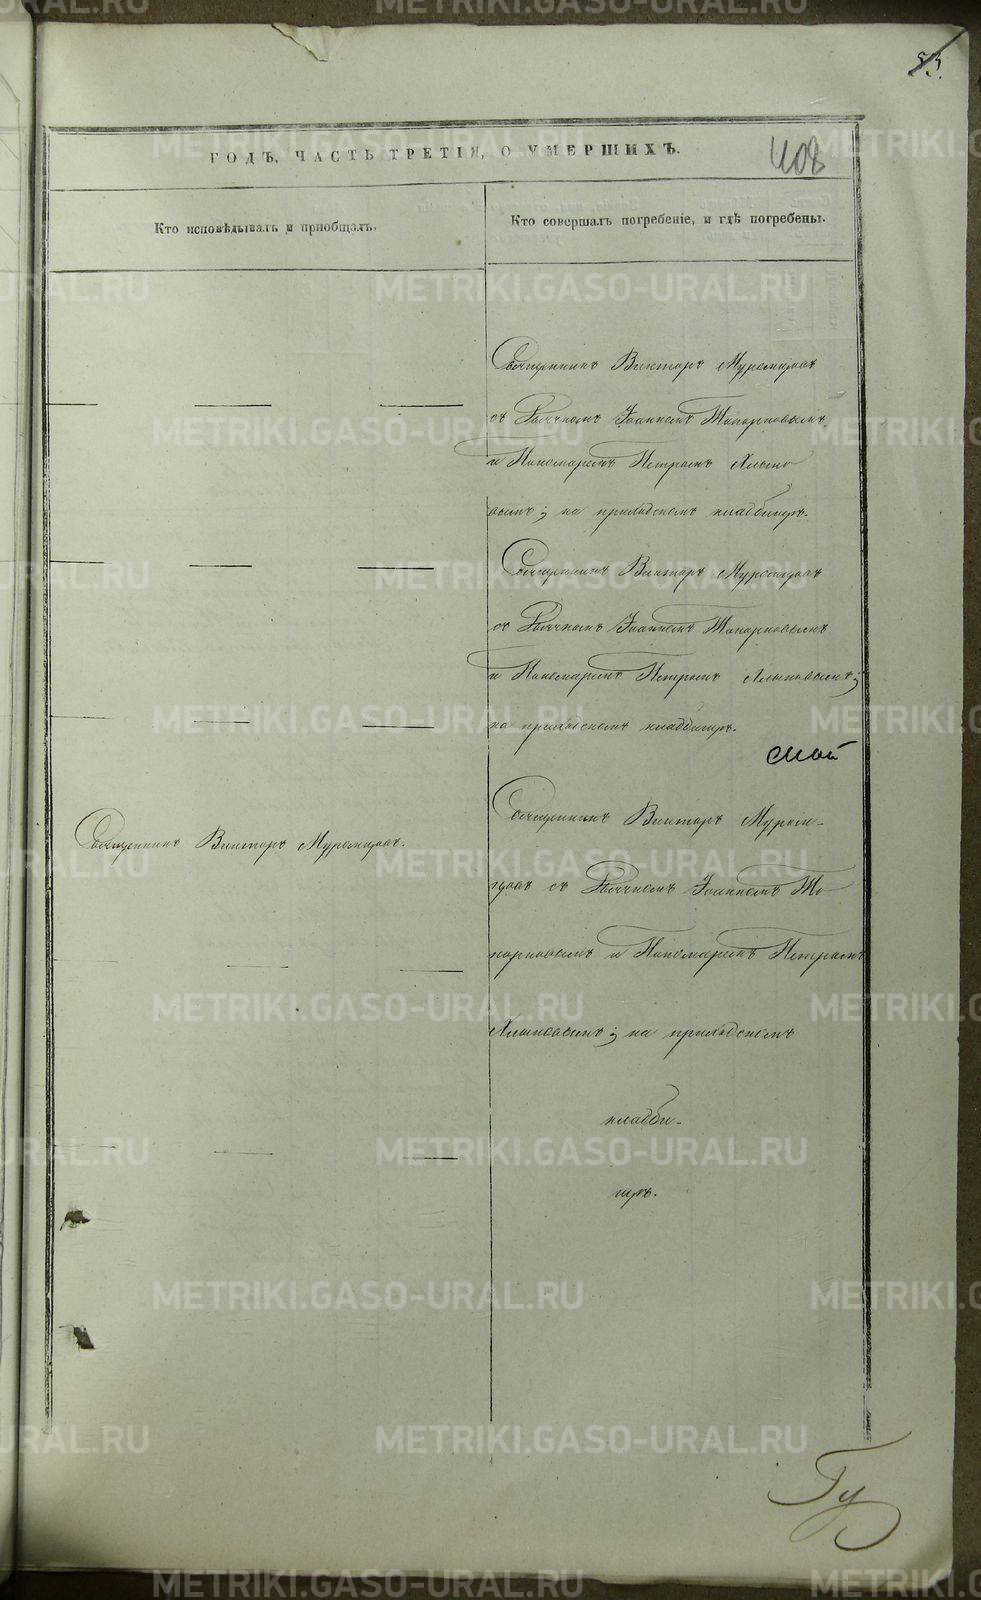 53.
ГОДЪ, ЧАСТЬ ТРЕТІЯ, О УМЕРШИХЪ.
408
Кто исповѣдывалъ и пріобщалъ.
Кто совершалъ погребеніе, и гдѣ погребены.
Священникъ Викторъ Муромцовъ
съ Дьячкомъ Іоанномъ Топорковымъ
и Пономаремъ Петромъ Хлыно
вымъ; на приходскомъ кладбищѣ.
Священникъ Викторъ Муромцовъ
съ Дьячкомъ Іоанномъ Топорковымъ
и Пономаремъ Петромъ Хлыновымъ;
на приходскомъ кладбищѣ.
Священникъ Викторъ Муромцовъ.
Священникъ Викторъ Муром-
цовъ съ Дьячкомъ Іоанномъ То-
порковымъ и Пономаремъ Петромъ
Хлыновымъ; на приходскомъ
кладби-
щѣ.
METRIKI.GASO-URAL.RU